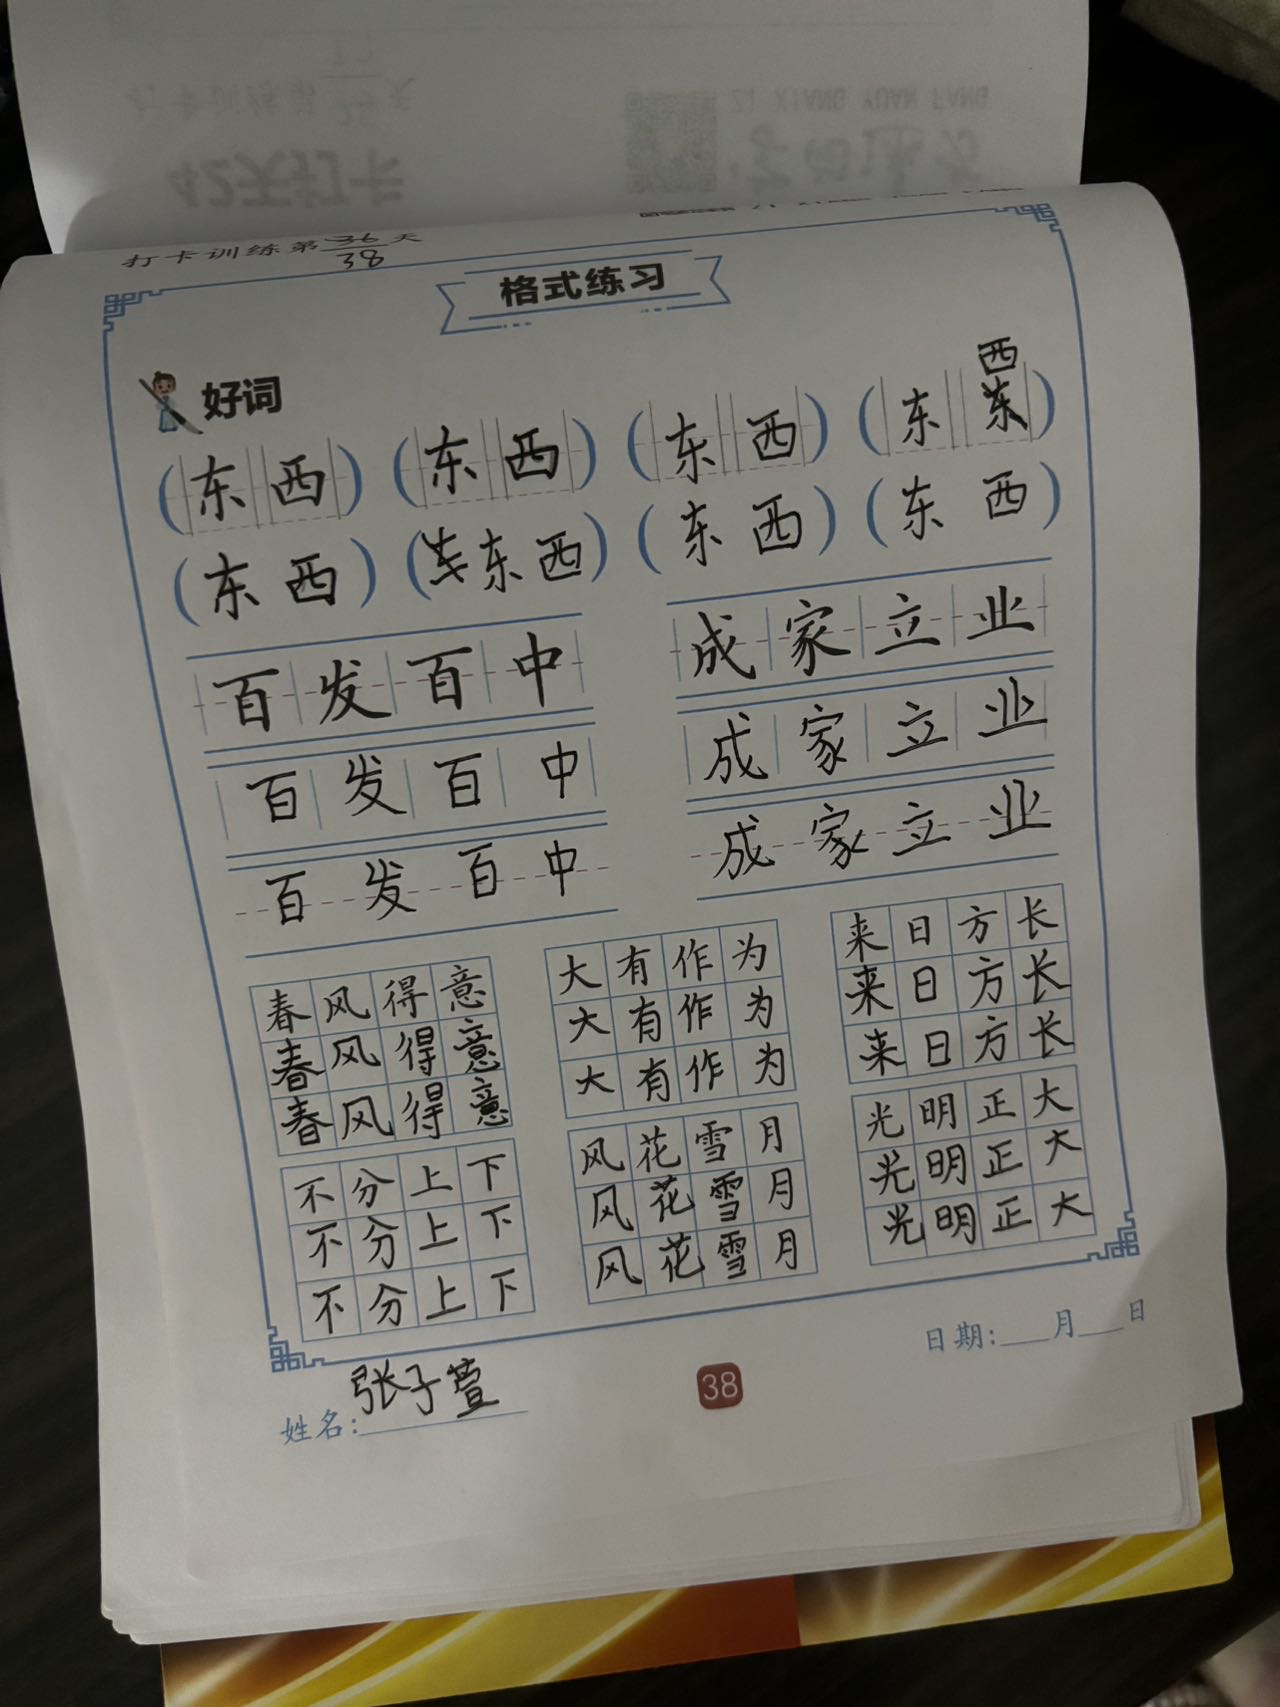 ZI XIANG YUAN FANG
42天打卡
打卡训练第36天
38
格式练习
好词
西
(东西) (东西) (东西) (东东)
(东西) (东西) (东西) (东西)
百发百中 成家立业
百发百中 成家立业
百发百中 成家立业
春风得意 大有作为 来日方长
春风得意 大有作为 来日方长
春风得意 大有作为 来日方长
不分上下 风花雪月 光明正大
不分上下 风花雪月 光明正大
不分上下 风花雪月 光明正大
姓名:张子萱 38 日期:___月___日